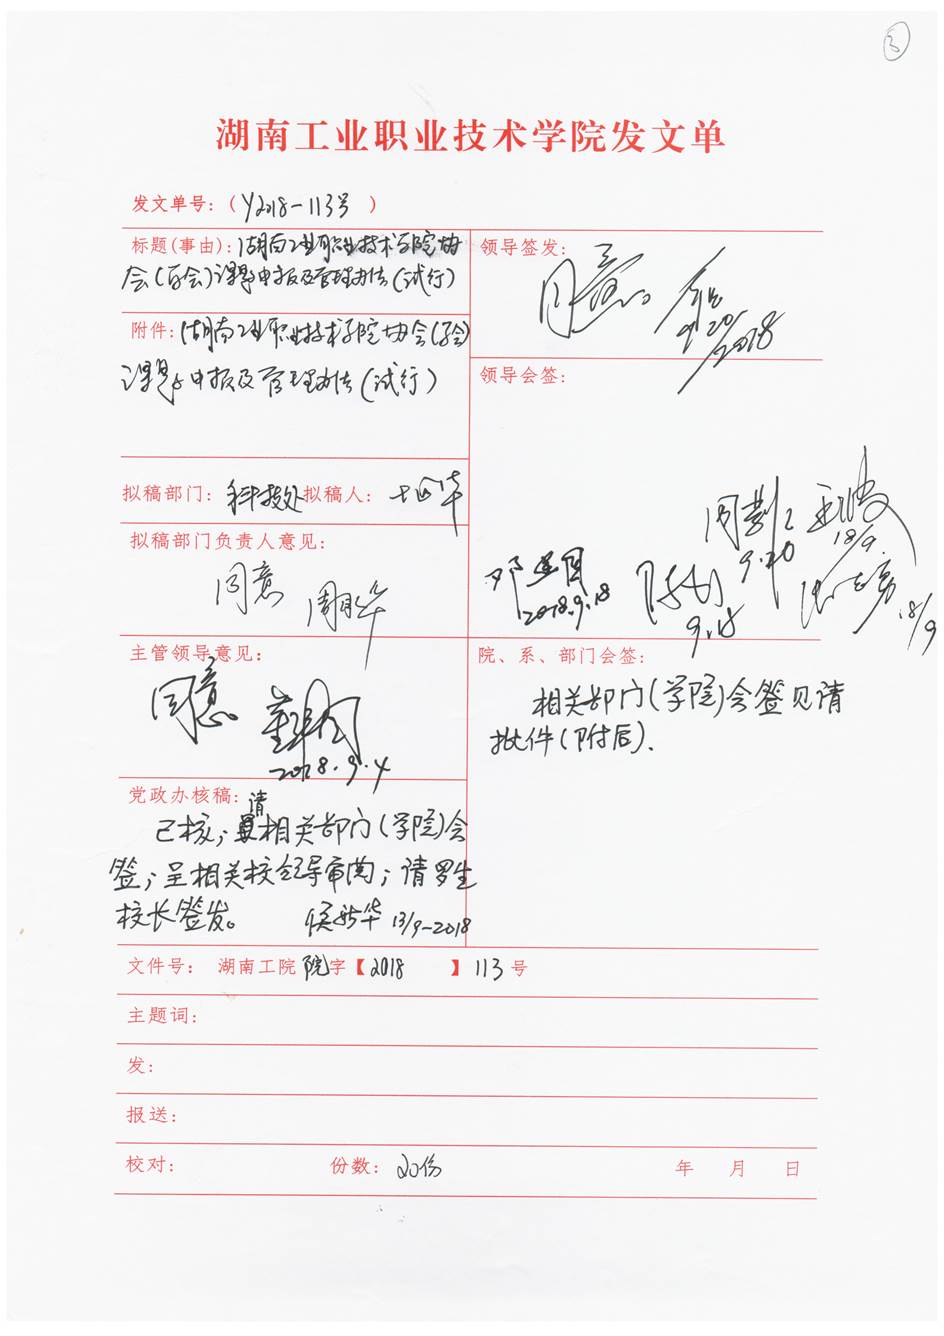 3
湖南工业职业技术学院发文单
发文单号：（Y2018-113号）
标题(事由)：湖南工业职业技术学院协
会(学会)课题申报及管理办法(试行)
附件：湖南工业职业技术学院协会(学会)
课题申报及管理办法(试行)
领导签发：
同意
9.20
2018
领导会签：
拟稿部门：科技处 拟稿人：
拟稿部门负责人意见：
同意
9.20
18/9
2018.9.18
9.18
18/9
主管领导意见：
同意
2018.9.4
院、系、部门会签：
相关部门(学院)会签见请
批件(附后).
党政办核稿：
已核；请相关部门(学院)会
签；呈相关校领导审阅；请罗生
校长签发。 侯新华 13/9-2018
文件号： 湖南工院 院字【2018 】113号
主题词：
发：
报送：
校对： 份数：20份 年 月 日